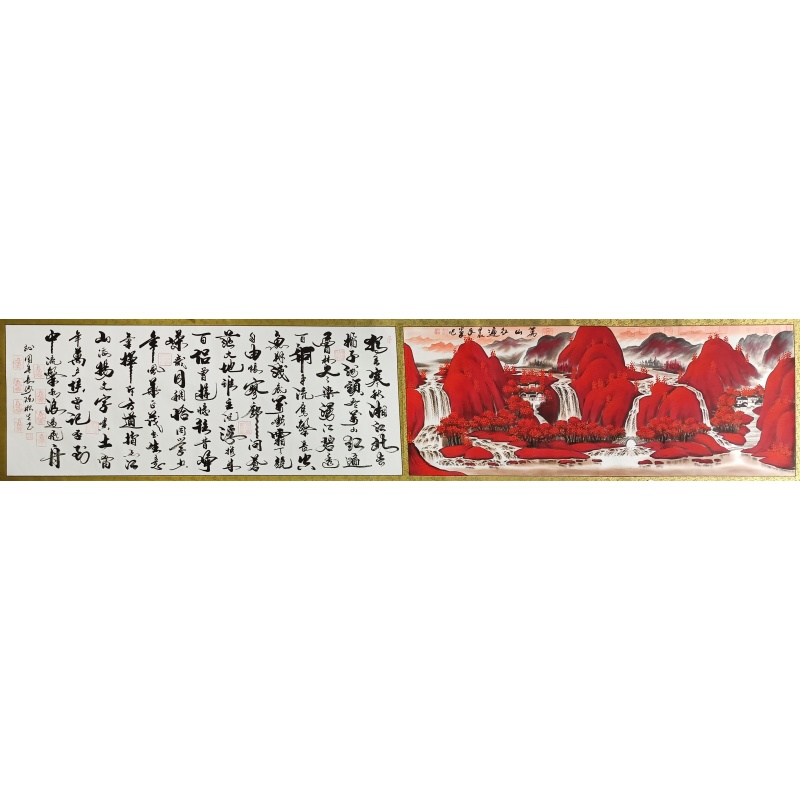 萬山紅遍
独立寒秋湘江北去
橘子洲頭看萬山紅遍
層林尽染漫江碧透
百舸争流鷹擊長空
魚翔浅底萬類霜天競
自由悵寥廓問蒼
茫大地誰主沉浮携来
百侣曾遊憶往昔崢
嶸歲月稠恰同学少
年風華正茂書生意
氣揮斥方遒指点江
山激揚文字糞土當
年萬户侯曾記否到
中流擊水浪遏飛舟
沁園春長沙